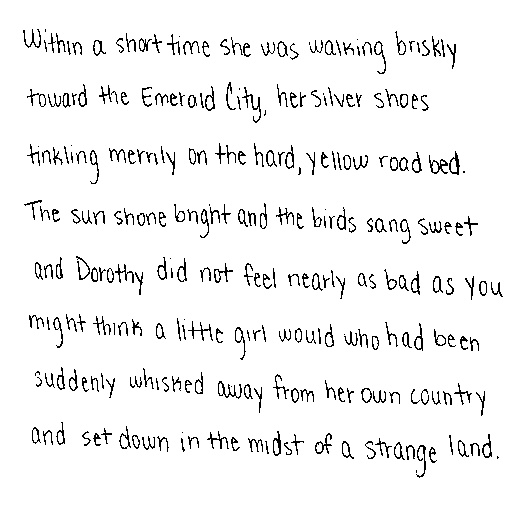 Within a short time she was walking briskly
toward the Emerald City, her silver shoes
tinkling merrily on the hard, yellow road bed.
The sun shone bright and the birds sang sweet
and Dorothy did not feel nearly as bad as you
might think a little girl would who had been
suddenly whisked away from her own country
and set down in the midst of a strange land.